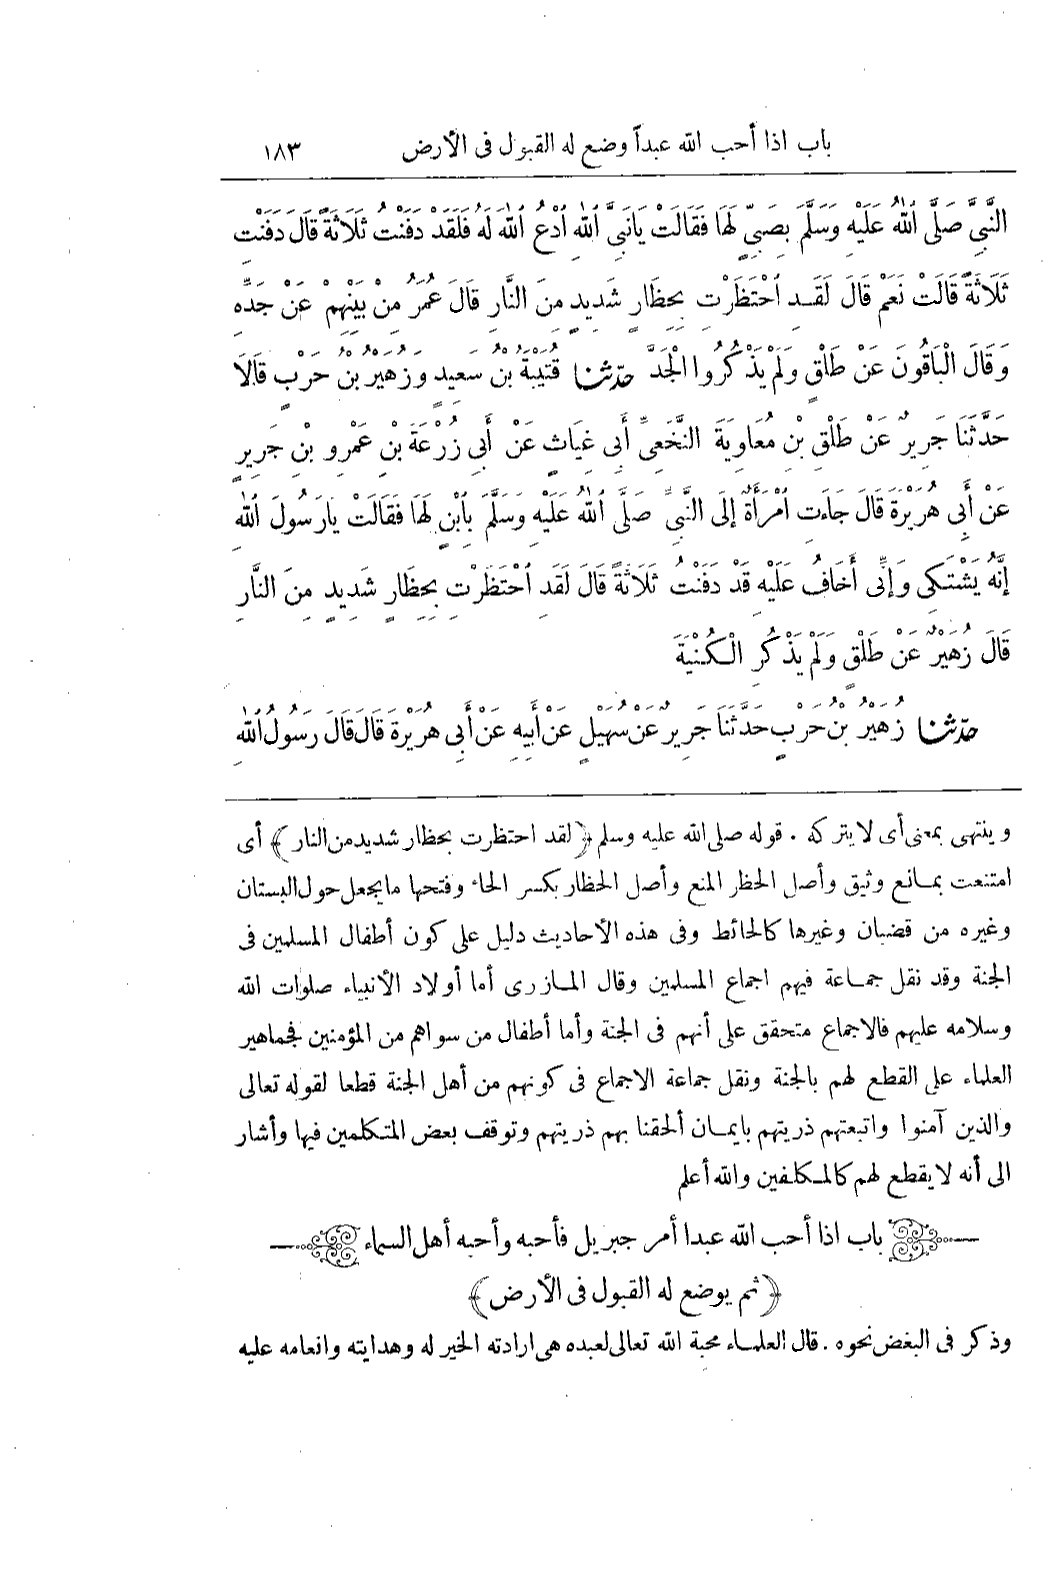 باب اذا أحب الله عبداً وضع له القبول فى الأرض ١٨٣
النَّبِيَّ صَلَّى اللهُ عَلَيْهِ وَسَلَّمَ بِصَبِيٍّ لَهَا فَقَالَتْ يَانَبِيَّ اللهِ ادْعُ اللهَ لَهُ فَلَقَدْ دَفَنْتُ ثَلَاثَةً قَالَ دَفَنْتِ
ثَلَاثَةً قَالَتْ نَعَمْ قَالَ لَقَدِ احْتَظَرْتِ بِحِظَارٍ شَدِيدٍ مِنَ النَّارِ قَالَ عُمَرُ مِنْ بَيْنِهِمْ عَنْ جَدِّهِ
وَقَالَ الْبَاقُونَ عَنْ طَلْقٍ وَلَمْ يَذْكُرُوا الْجَدَّ حدّثنا قُتَيْبَةُ بْنُ سَعِيدٍ وَزُهَيْرُ بْنُ حَرْبٍ قَالَا
حَدَّثَنَا جَرِيرٌ عَنْ طَلْقِ بْنِ مُعَاوِيَةَ النَّخَعِيِّ أَبِى غِيَاثٍ عَنْ أَبِى زُرْعَةَ بْنِ عَمْرِو بْنِ جَرِيرٍ
عَنْ أَبِى هُرَيْرَةَ قَالَ جَاءَتِ امْرَأَةٌ إِلَى النَّبِيِّ صَلَّى اللهُ عَلَيْهِ وَسَلَّمَ بِابْنٍ لَهَا فَقَالَتْ يَارَسُولَ اللهِ
إِنَّهُ يَشْتَكِى وَإِنِّى أَخَافُ عَلَيْهِ قَدْ دَفَنْتُ ثَلَاثَةً قَالَ لَقَدِ احْتَظَرْتِ بِحِظَارٍ شَدِيدٍ مِنَ النَّارِ
قَالَ زُهَيْرٌ عَنْ طَلْقٍ وَلَمْ يَذْكُرِ الْكُنْيَةَ
حدّثنا زُهَيْرُ بْنُ حَرْبٍ حَدَّثَنَا جَرِيرٌ عَنْ سُهَيْلٍ عَنْ أَبِيهِ عَنْ أَبِى هُرَيْرَةَ قَالَ قَالَ رَسُولُ اللهِ
وينتهى بمعنى أى لا يتركه . قوله صلى الله عليه وسلم ﴿لقد احتظرت بحظار شديد من النار﴾ أى
امتنعت بمـانع وثيق وأصل الحظر المنع وأصل الحظار بكسر الحاء وفتحها ما يجعل حول البستان
وغيره من قضبان وغيرها كالحائط وفى هذه الأحاديث دليل على كون أطفال المسلمين فى
الجنة وقد نقل جمـاعة فيهم اجماع المسلمين وقال المـازرى أما أولاد الأنبياء صلوات الله
وسلامه عليهم فالاجماع متحقق على أنهم فى الجنة وأما أطفال من سواهم من المؤمنين فجماهير
العلماء على القطع لهم بالجنة ونقل جماعة الاجماع فى كونهم من أهل الجنة قطعا لقوله تعالى
والذين آمنوا واتبعتهم ذريتهم بايمـان ألحقنا بهم ذريتهم وتوقف بعض المتكلمين فيها وأشار
الى أنه لا يقطع لهم كالمـكلفين والله أعلم
باب اذا أحب الله عبدا أمر جبريل فأحبه وأحبه أهل السماء
﴿ثم يوضع له القبول فى الأرض﴾
وذكر فى البغض نحوه . قال العلمـاء محبة الله تعالى لعبده هى ارادته الخير له وهدايته وانعامه عليه